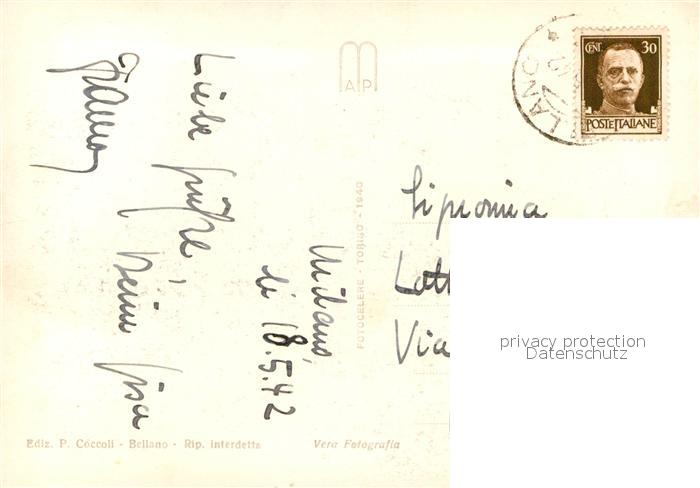 Milano,
li 18.5.42
Liebe Grüße,
Deine Lisa
MAP
FOTOCELERE - TORINO - 1940
LANO
CENT. 30
POSTE ITALIANE
Signorina
Lott
Via
privacy protection
Datenschutz
Ediz. P. Coccoli - Bellano - Rip. interdetta
Vera Fotografia